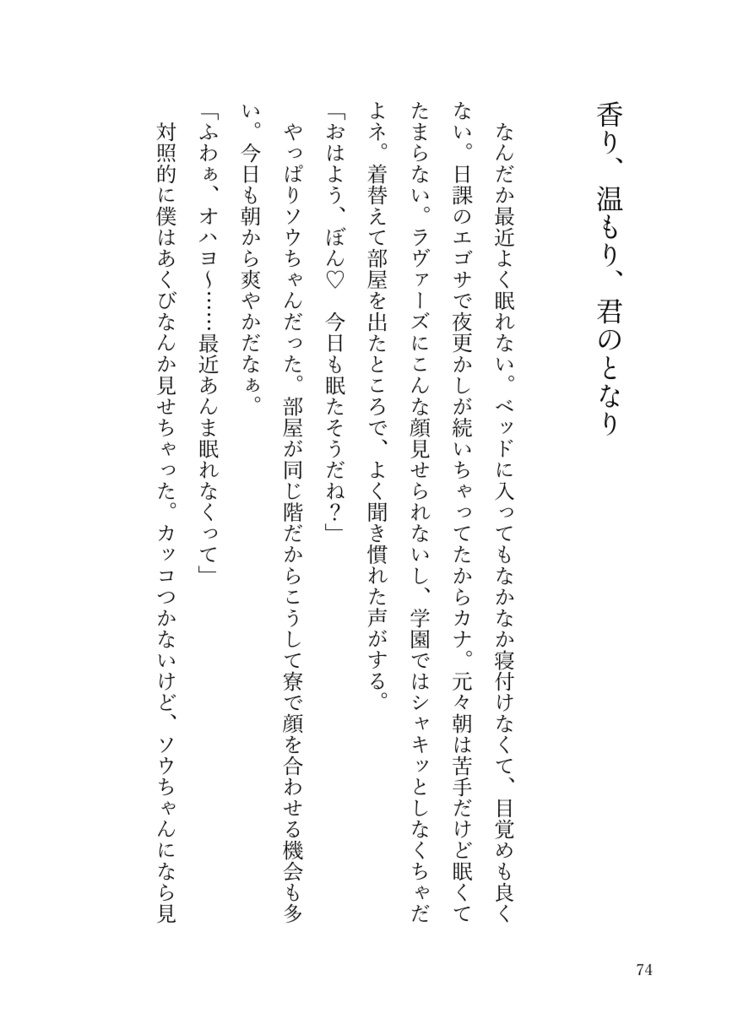 香り、温もり、君のとなり
なんだか最近よく眠れない。ベッドに入ってもなかなか寝付けなくて、目覚めも良く
ない。日課のエゴサで夜更かしが続いちゃってたからカナ。元々朝は苦手だけど眠くて
たまらない。ラヴァーズにこんな顔見せられないし、学園ではシャキッとしなくちゃだ
よネ。着替えて部屋を出たところで、よく聞き慣れた声がする。
「おはよう、ぼん♡　今日も眠たそうだね？」
やっぱりソウちゃんだった。部屋が同じ階だからこうして寮で顔を合わせる機会も多
い。今日も朝から爽やかだなぁ。
「ふわぁ、オハヨ～……最近あんま眠れなくって」
対照的に僕はあくびなんか見せちゃった。カッコつかないけど、ソウちゃんになら見
74